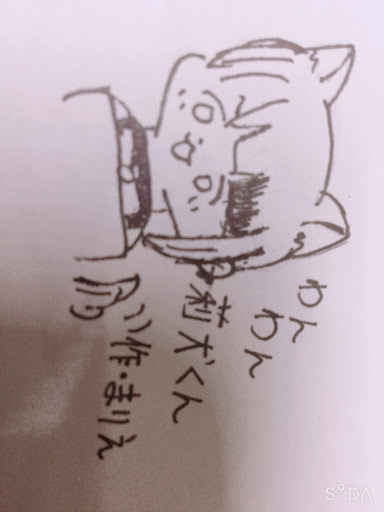 わん
わん
莉犬くん
作・まりえ
SODA